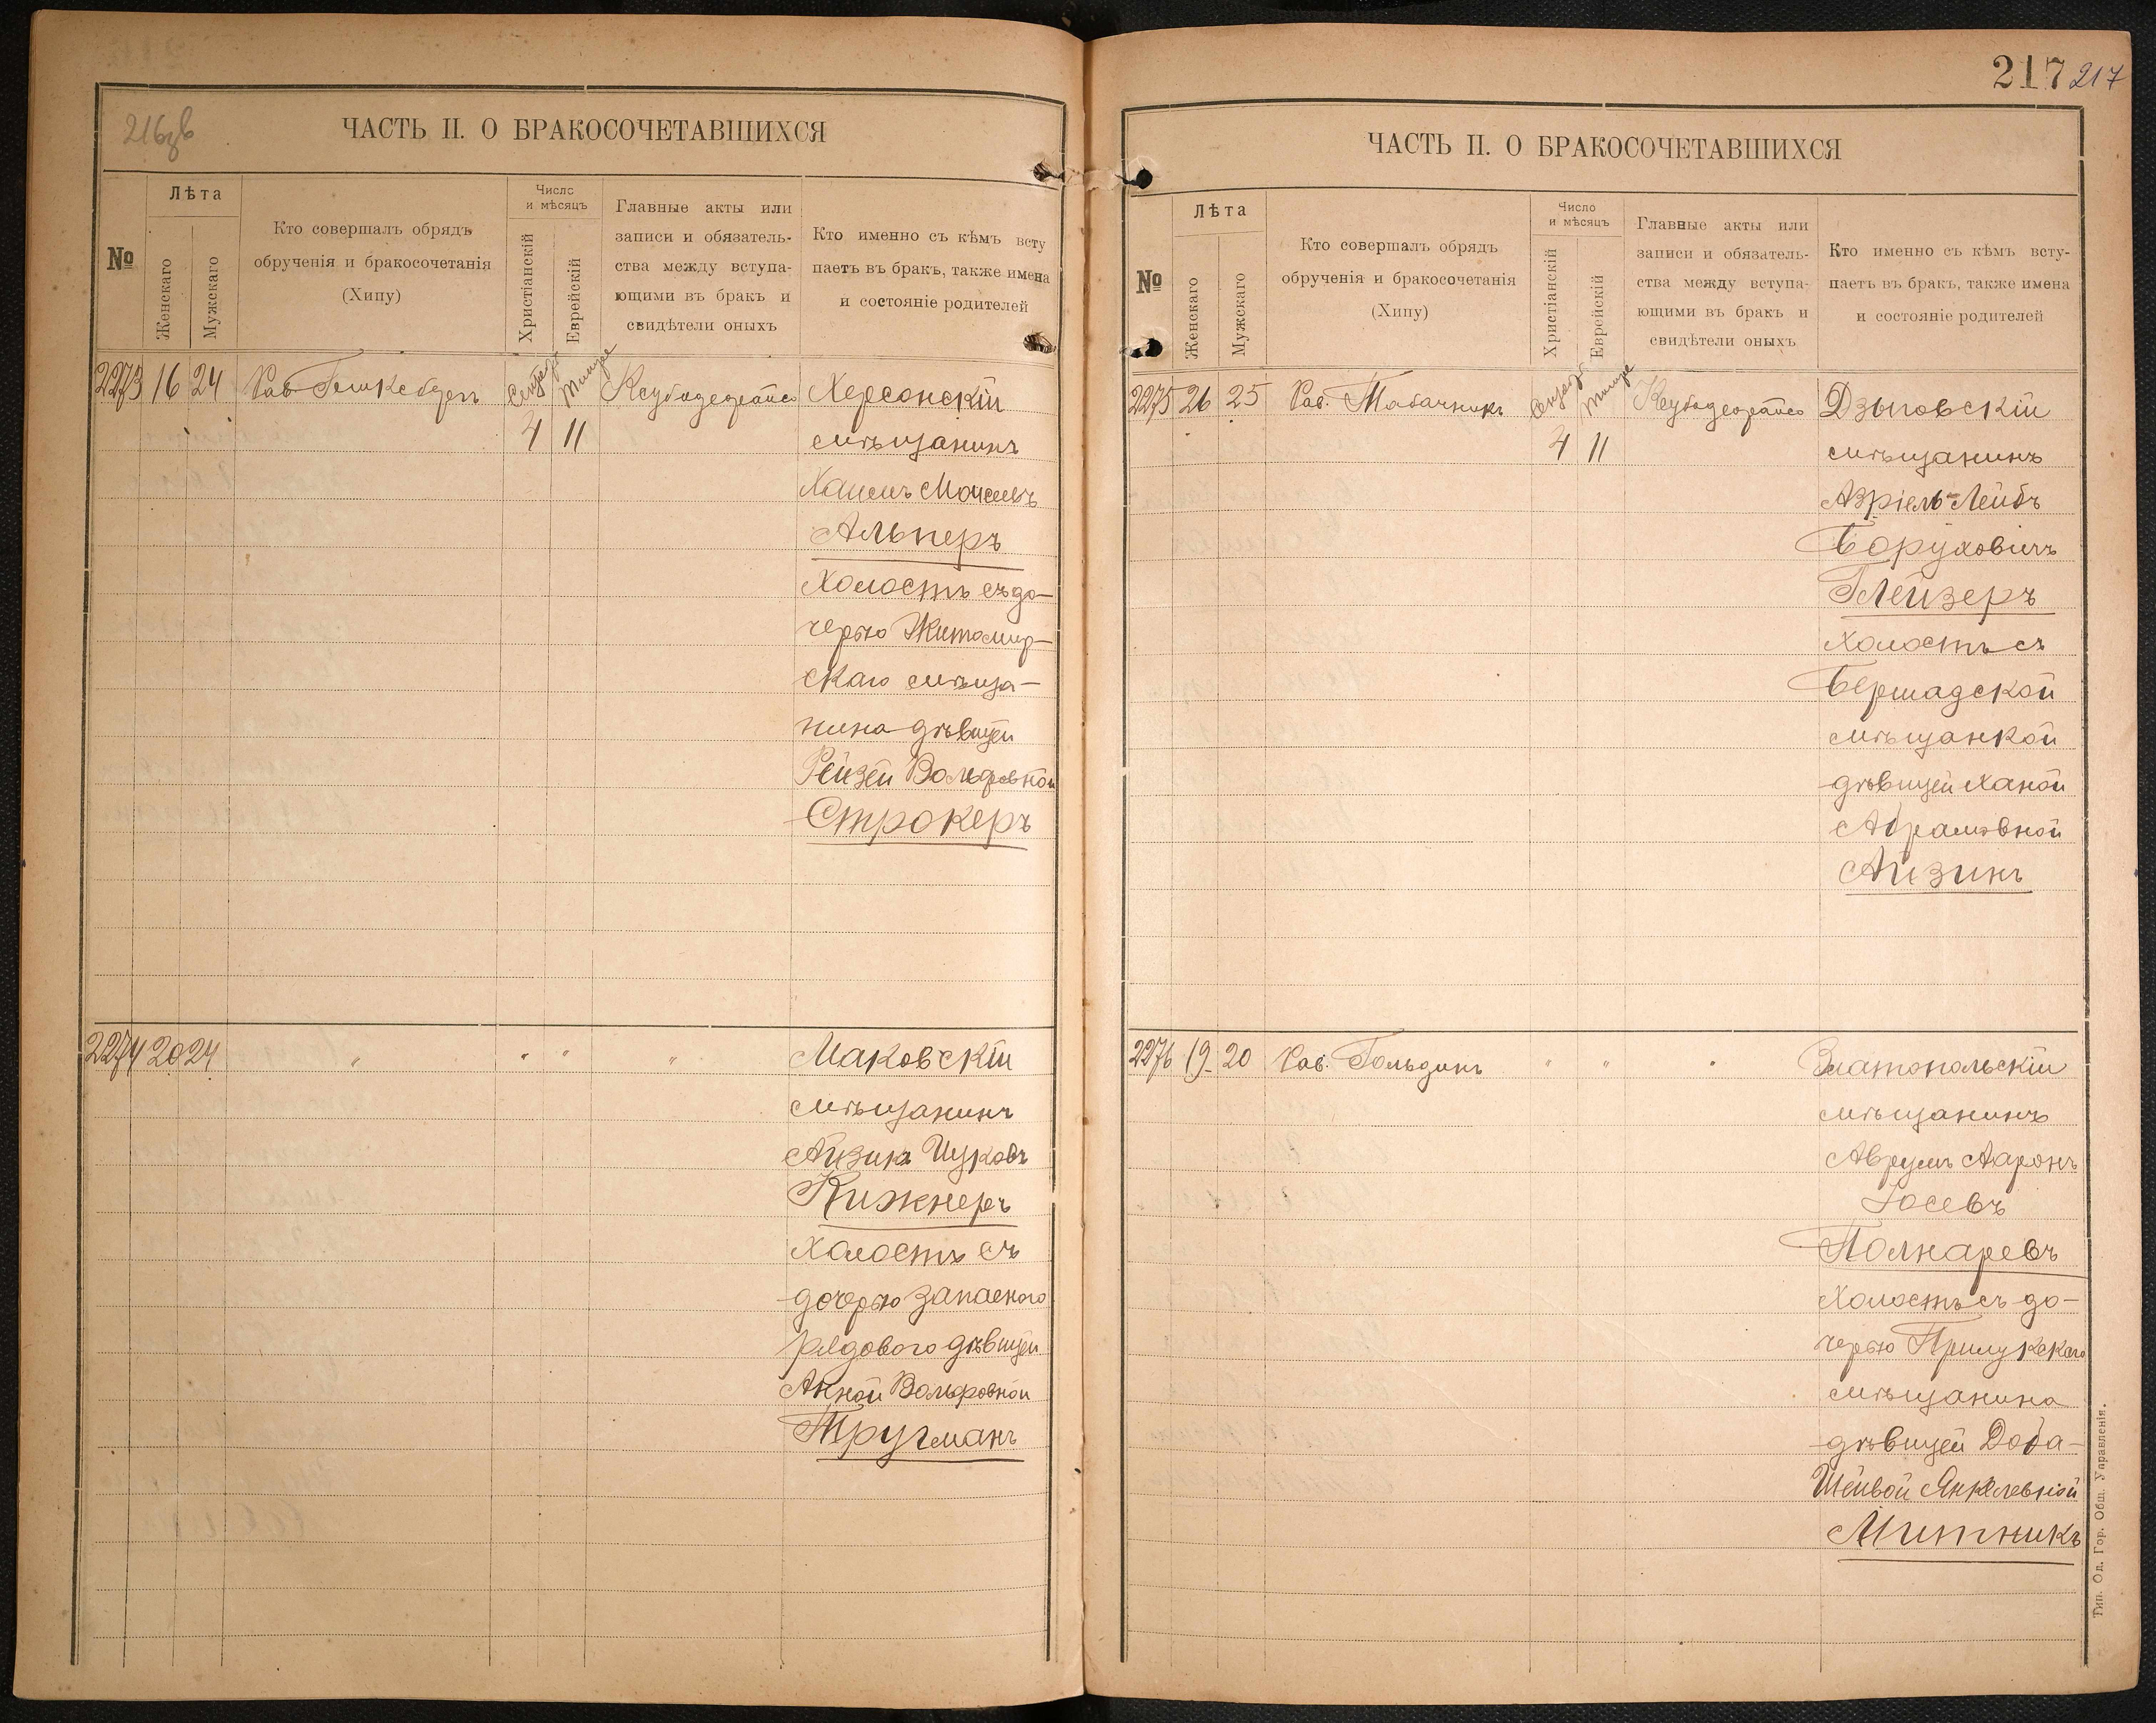 216об
ЧАСТЬ II. О БРАКОСОЧЕТАВШИХСЯ
№
Лѣта
Женскаго
Мужскаго
Кто совершалъ обрядъ
обрученія и бракосочетанія
(Хипу)
Число
и мѣсяцъ
Христіанскій
Еврейскій
Главные акты или
записи и обязатель-
ства между вступа-
ющими въ бракъ и
свидѣтели оныхъ
Кто именно съ кѣмъ всту
паетъ въ бракъ, также имена
и состояніе родителей
2273 16 24 Рав. Тишре Херсонскій
4 11 мѣщанинъ
Хаимъ Мошевъ
Альперъ
холостъ съ до-
черью Житомир-
скаго мѣща-
нина дѣвицей
Рейзей Вольфовной
Строкеръ
2274 20 24 " " " " Маковскій
мѣщанинъ
Айзикъ Ицковъ
Кижнеръ
холостъ съ
дочерью запасного
рядового дѣвицей
Анной Вольфовной
Тругманъ
217 217
ЧАСТЬ II. О БРАКОСОЧЕТАВШИХСЯ
№
Лѣта
Женскаго
Мужскаго
Кто совершалъ обрядъ
обрученія и бракосочетанія
(Хипу)
Число
и мѣсяцъ
Христіанскій
Еврейскій
Главные акты или
записи и обязатель-
ства между вступа-
ющими въ бракъ и
свидѣтели оныхъ
Кто именно съ кѣмъ всту-
паетъ въ бракъ, также имена
и состояніе родителей
2275 26 25 Рав. Табачникъ Тишре Дзыговскій
4 11 мѣщанинъ
Азріель-Лейбъ
Боруховичъ
Глейзеръ
холостъ съ
Бершадской
мѣщанкой
дѣвицей Ханой
Абрамовной
Айзинъ
2276 19 20 Рав. Гольдинъ " " " Златопольскій
мѣщанинъ
Аврумъ Ааронъ
Іосевъ
Полнаревъ
холостъ съ до-
черью Прилукскаго
мѣщанина
дѣвицей Доба-
Шейвой Янкелевной
Митникъ
Тип. Од. Гор. Общ. Управленія.